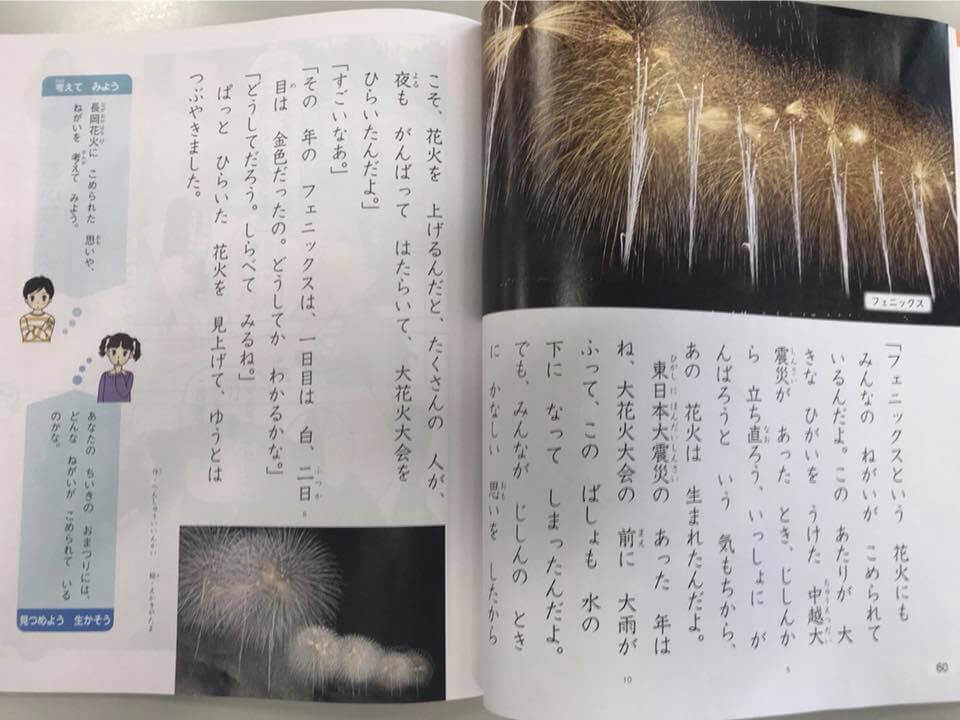 フェニックス
「フェニックスという　花火にも
みんなの　ねがいが　こめられて
いるんだよ。この　あたりが　大
きな　ひがいを　うけた　中越大
震災が　あった　とき、じしんか
ら　立ち直ろう、いっしょに　が
んばろうと　いう　気もちから、
あの　花火は　生まれたんだよ。
東日本大震災の　あった　年は
ね、大花火大会の　前に　大雨が
ふって、この　ばしょも　水の
下に　なって　しまったんだよ。
でも、みんなが　じしんの　とき
に　かなしい　思いを　したから
5
10
60
こそ、花火を　上げるんだと、たくさんの　人が、
夜も　がんばって　はたらいて、大花火大会を
ひらいたんだよ。」
「すごいなあ。」
「その　年の　フェニックスは、一日目は　白、二日
目は　金色だったの。どうしてか　わかるかな。」
「どうしてだろう。しらべて　みるね。」
ぱっと　ひらいた　花火を　見上げて、ゆうとは
つぶやきました。
5
作・へんしゅういいんかい
考えて　みよう
長岡花火に　こめられた　思いや、
ねがいを　考えて　みよう。
あなたの　ちいきの　おまつりには、
どんな　ねがいが　こめられて　いる
のかな。
見つめよう　生かそう